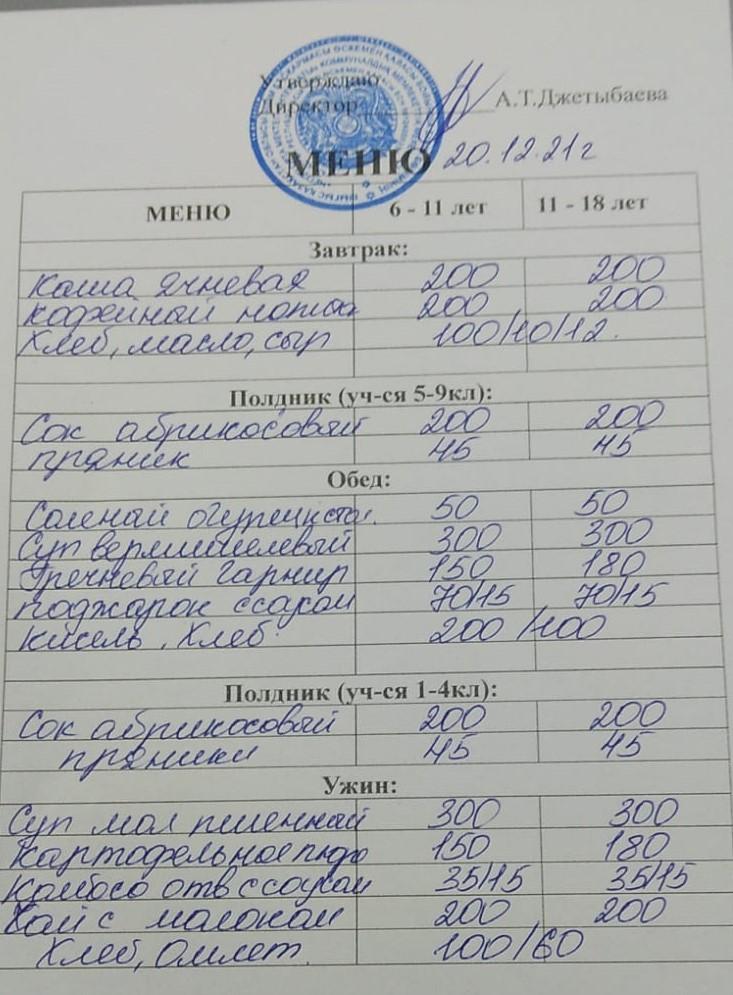 Утверждаю
Директор А.Т.Джетыбаева
МЕНЮ 20.12.21г
МЕНЮ 6 - 11 лет 11 - 18 лет
Завтрак:
Каша ячневая 200 200
кофейный 200 200
Хлеб, масло, сыр 100/10/12.
Полдник (уч-ся 5-9кл):
Сок абрикосовый 200 200
пряник 45 45
Обед:
Соленый 50 50
Суп вермишелевый 300 300
Гречневый гарнир 150 180
поджарок 70/15 70/15
кисель, Хлеб 200/100
Полдник (уч-ся 1-4кл):
Сок абрикосовый 200 200
пряники 45 45
Ужин:
Суп мол пшенный 300 300
Картофельное пюре 150 180
Колбаса отв с соусом 35/15 35/15
Чай с молоком 200 200
Хлеб, Омлет. 100/60